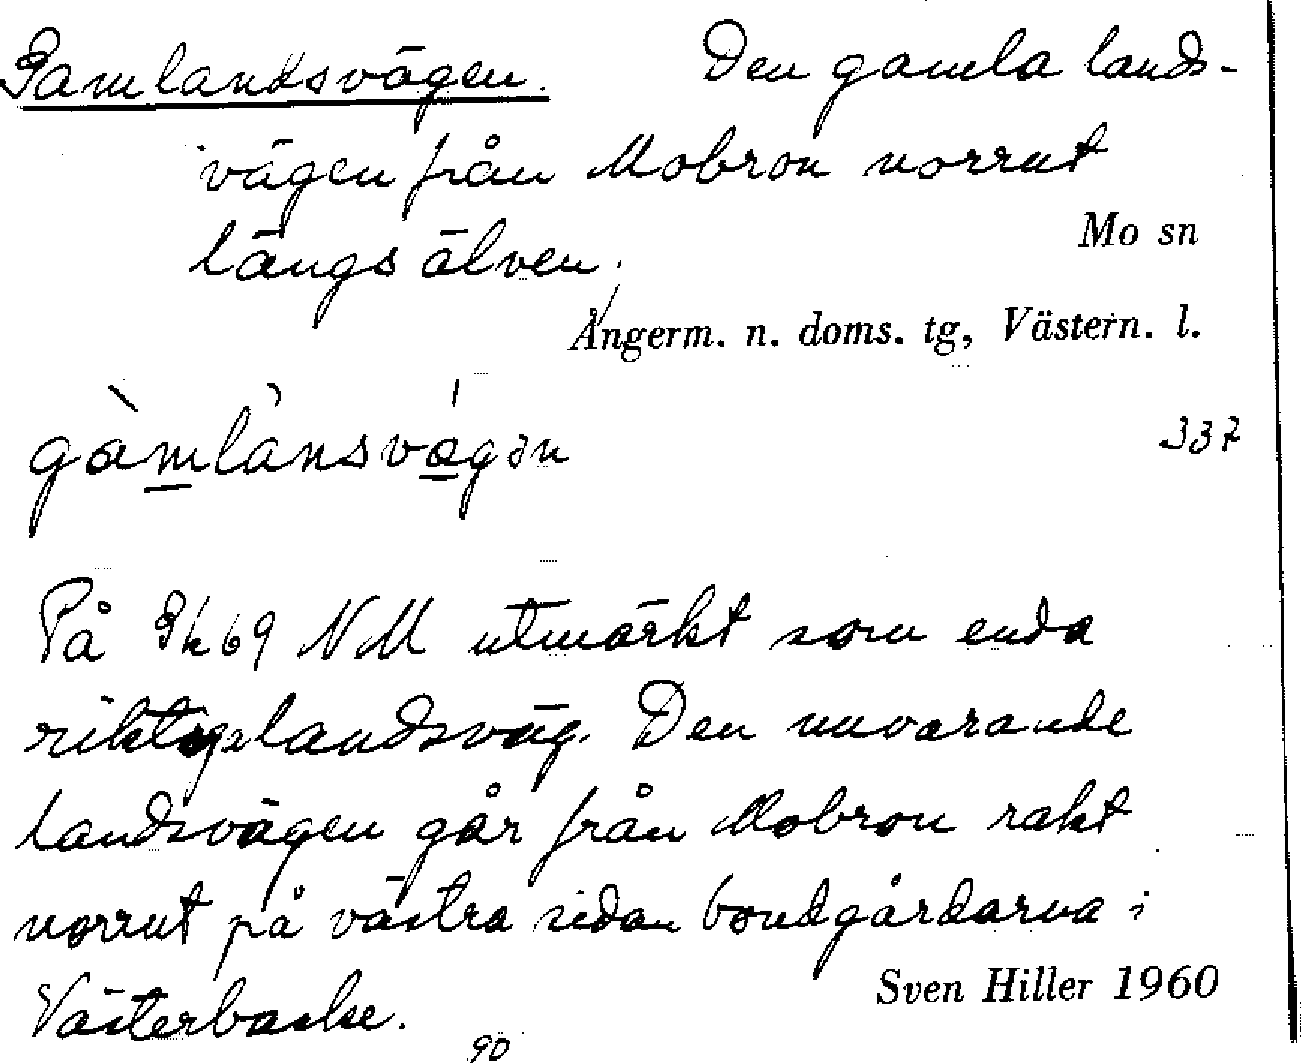 Gamlandsvägen. Den gamla lands-
vägen från Mobron norrut
längs älven.
Mo sn
Ångerm. n. doms. tg, Västern. l.
gàmlànsvä́gən
337
På Gk 69 NM utmärkt som enda
riktiga landsväg. Den nuvarande
landsvägen går från Mobron rakt
norrut på västra sidan bondgårdarna i
Västerbacke.
Sven Hiller 1960
90